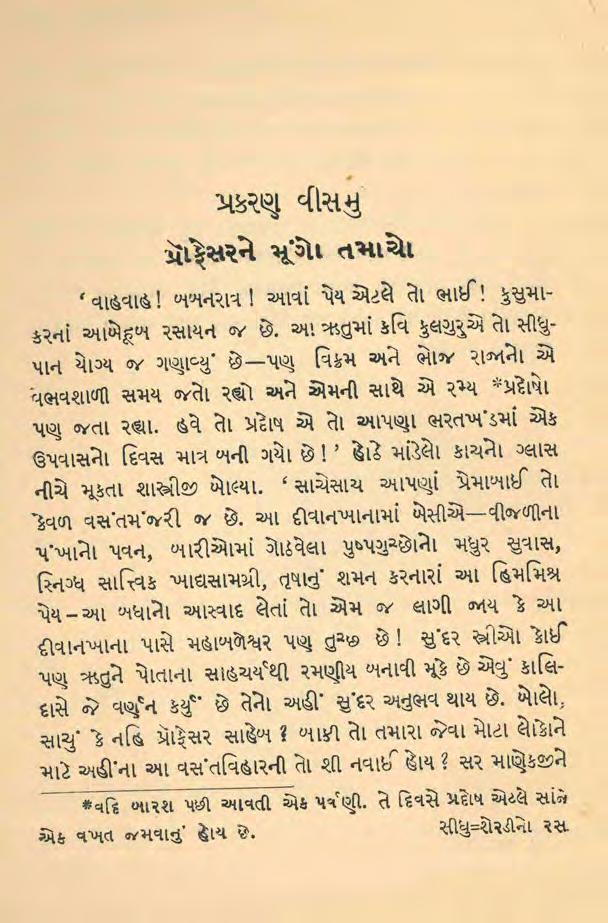 પ્રકરણ વીસમુ
પ્રૉફેસરને મૂંગો તમાચો
‘ વાહવાહ ! બબનરાવ ! આવાં પેય એટલે તો ભાઈ ! કુસુમા-
કરનાં આબેહૂબ રસાયન જ છે. આ ઋતુમાં કવિ કુલગુરુએ તો સીધુ-
પાન યોગ્ય જ ગણાવ્યું છે—પણ વિક્રમ અને ભોજ રાજાનો એ
વૈભવશાળી સમય જતો રહ્યો અને એમની સાથે એ રમ્ય *પ્રદોષો
પણ જતા રહ્યા. હવે તો પ્રદોષ એ તો આપણા ભરતખંડમાં એક
ઉપવાસનો દિવસ માત્ર બની ગયો છે ! ’ હોઠે માંડેલો કાચનો ગ્લાસ
નીચે મૂકતા શાસ્ત્રીજી બોલ્યા. ‘ સાચેસાચ આપણાં પ્રેમાબાઈ તો
કેવળ વસંતમંજરી જ છે. આ દીવાનખાનામાં બેસીએ—વીજળીના
પંખાનો પવન, બારીઓમાં ગોઠવેલા પુષ્પગુચ્છોનો મધુર સુવાસ,
સ્નિગ્ધ સાત્ત્વિક ખાદ્યસામગ્રી, તૃષાનું શમન કરનારાં આ હિમમિશ્ર
પેય – આ બધાનો આસ્વાદ લેતાં તો એમ જ લાગી જાય કે આ
દીવાનખાના પાસે મહાબળેશ્વર પણ તુચ્છ છે ! સુંદર સ્ત્રીઓ કોઈ
પણ ઋતુને પોતાના સાહચર્યથી રમણીય બનાવી મૂકે છે એવું કાલિ-
દાસે જે વર્ણન કર્યું છે તેનો અહીં સુંદર અનુભવ થાય છે. બોલો,
સાચું કે નહિ પ્રૉફેસર સાહેબ ? બાકી તો તમારા જેવા મોટા લોકોને
માટે અહીંના આ વસંતવિહારની તો શી નવાઈ હોય ? સર માણેકજીને
*વદિ બારશ પછી આવતી એક પર્વણી. તે દિવસે પ્રદોષ એટલે સાંજે
એક વખત જમવાનું હોય છે. સીધુ=શેરડીનો રસ.